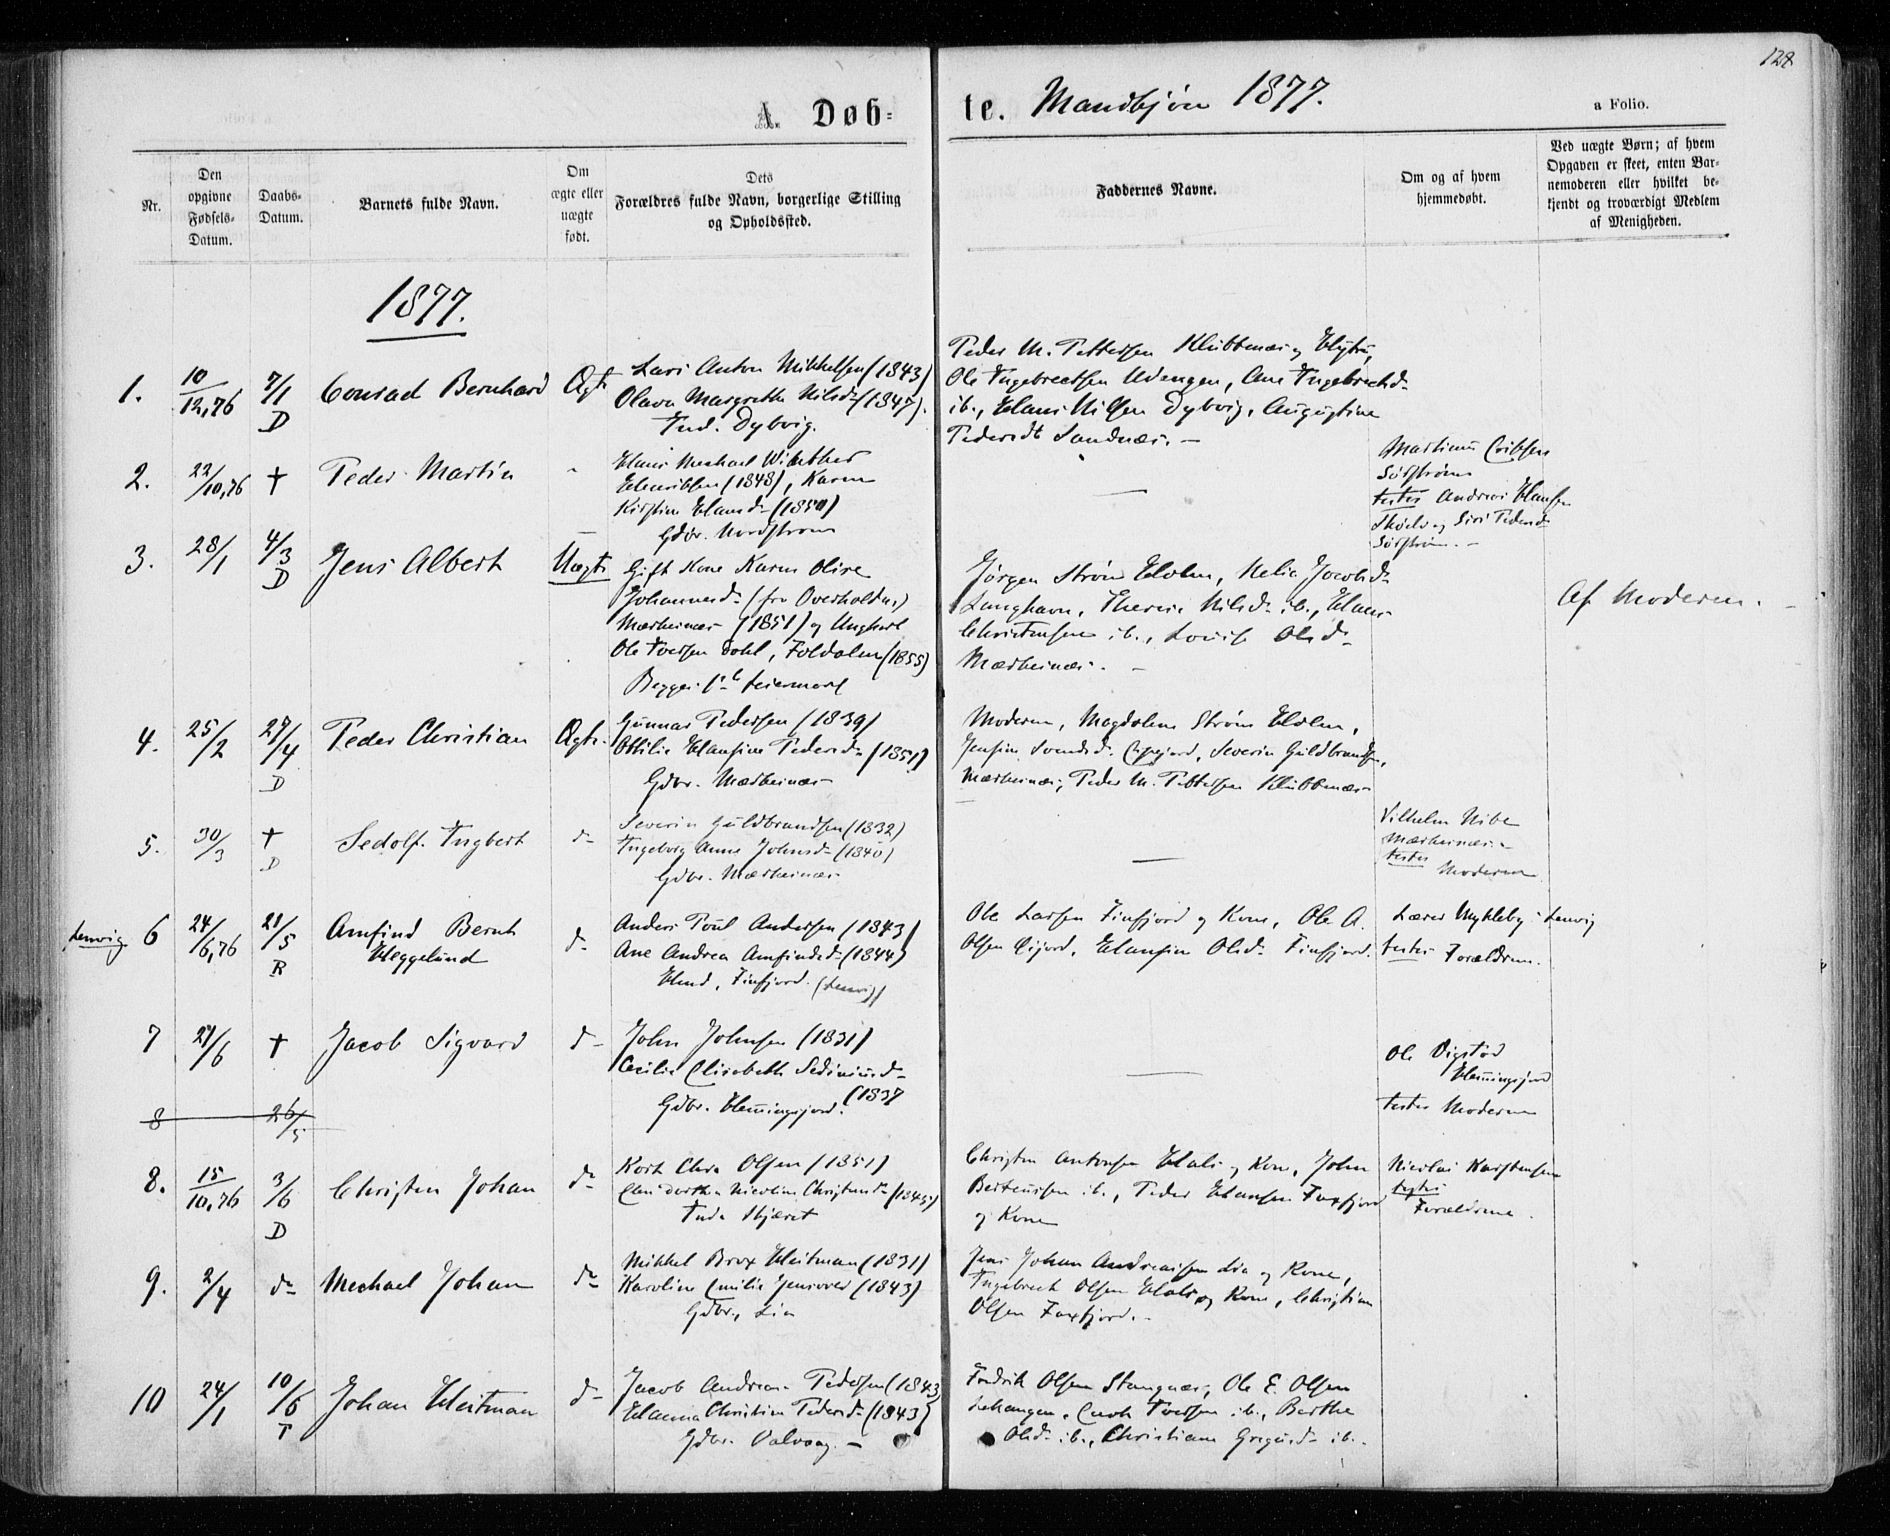 128
A. Døb-
te. Mandkjøn 1877.
a Folio.
Nr.
Den opgivne Fødsels-Datum.
Daabs-Datum.
Barnets fulde Navn.
Om ægte eller uægte født.
Dets
Forældres fulde Navn, borgerlige Stilling
og Opholdssted.
Faddernes Navne.
Om og af hvem
hjemmedøbt.
Ved uægte Børn; af hvem
Opgaven er skeet, enten Bar-
nemoderen eller hvilket be-
kjendt og troværdigt Medlem
af Menigheden.
1877.
1. 10/12,76 7/1 D Conrad Bernhard Ægt.
Lars Anton Mikkelsen (1843)
Olava Margrethe Nilsd. (1847).
Ind. Dybvig.
Peder M. Pettersen Klubbenæs og Hustru,
Ole Ingebrectsen Udengen, Ane Ingebrectsd.
ib., Hans Nilsen Dybvig, Augustine
Pedersdt Sandnæs. -
2. 22/10,76 † Peder Martin
Hans Mechael Winther
Henriksen (1848), Karen
Kirstine Hansd. (1850)
Gdbr. Nordstrøm
Martinus Eriksen
Sørstrøm
testes Andreas Hansen
Skoelv og Siri Pedersd.
Sørstrøm. -
3. 28/1 4/3 D Jens Albert Uægt.
Gift Kone Karen Olive
Johannesd. (fra Overhalden)
Mærkenæs (1851) og Ungkarl
Ole Iversen Dahl, Foldalen (1855)
Begges 1ste Leiermaal
Jørgen Strøm Holm, Nelia Jacobsd.
Langhavn, Therese Nilsd. ib., Hans
Christensen ib., Lovise Olsd.
Mærkenæs. -
Af Moderen. -
4. 25/2 27/4 D Peder Christian Ægte.
Gunnar Pedersen (1839)
Ottilie Hansine Pedersd. (1851)
Gdbr. Mærkenæs
Moderen, Magdalena Strøm Holm,
Jensine Svendsd. Espejord, Severin Guldbrandsen,
Mærkenæs, Peder M. Pettersen Klubbenæs
5. 30/3 † D Sedolf Ingbert d-
Severin Guldbrandsen (1832)
Ingeborg Anne Johnsd. (1840)
Gdbr. Mærkenæs
Vilhelm Nibe
Mærkenæs. -
testes Moderen
Lenvig 6 24/6,76 21/5 R Arnfind Bernt
Heggelund d-
Anders Poul Andersen (1843)
Ane Andrea Arnfindsd. (1844)
Hmd, Finfjord. (Lenvig)
Ole Larsen Finfjord og Kone, Ole A.
Olsen Eijord, Hansine Olsd. Finfjord.
Lærer Mykleby - Lenvig
testes Forældrene.
7 21/6 † Jacob Sigvard d-
John Johnsen (1831)
Cecilie Elisabeth Sediniusd.
Gdbr. Hemingsjord. (1837
Ole Vigstød
Hemingsjord
testes Moderen
8 26/5
8. 15/10,76 3/6 D Christen Johan do
Kort Chr. Olsen (1851)
Nicoline Christensd. (1845)
Inds Skjæret
Christen Antonsen Hals og Kone, John
Berteussen ib., Peder Hansen Faxfjord
og Kone
Nicolai Karstensen
testes
Forældrene.
9. 2/4 do Mechael Johan do
Mikkel Brox Heitman (1831)
Karoline Emilie Jensdr (1843)
Gdbr., Lia
Jens Johan Andreassen Lia og Kone,
Ingebrect Olsen Hals og Kone, Christian
Olsen Faxfjord. -
10 24/1 10/6 T Johan Heitman d-
Jacob Andreas Pedersen (1843)
Hanna Christine Pedersd. (1843)
Gdbr. Valvaag. -
Fredrik Olsen Stangnæs, Ole E. Olsen
Iversen ib., Berthe
Olsd. ib., Christiane Gregusd. ib. -